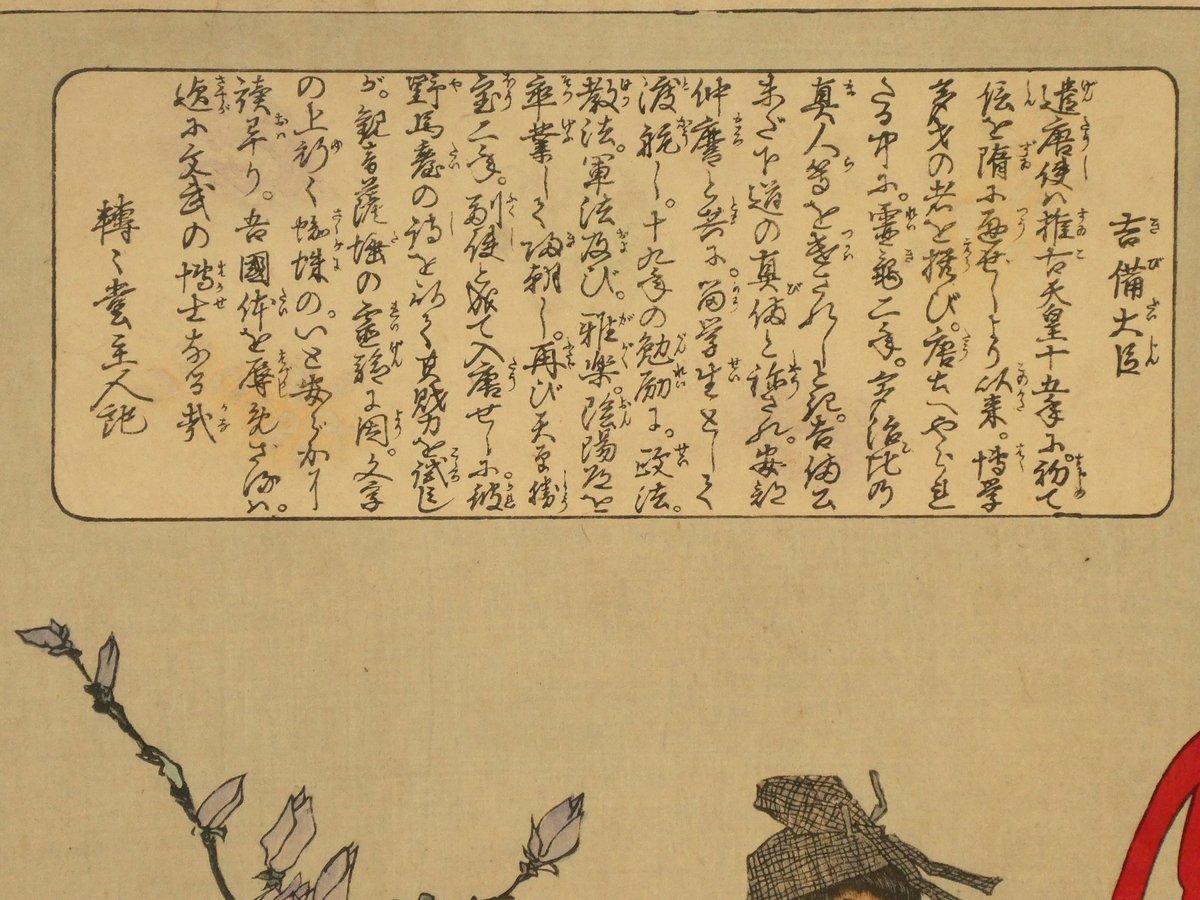 吉備大臣
遣唐使は推古天皇十五年に初て
伝を隋に通ぜしより以来。博学
多才の者を撰び。唐土へやられ
たる中に。霊亀二年。多治比の
真人等を遣されし紀。吉備公
未だ下道の真備と称され。安部
仲麿と共に。留学生として
渡航し。十九年の勉励に。政法。
教法。軍法及び。雅楽。陰陽道を
卒業して帰朝し。再び天平勝
宝二年。副使と成て入唐せしに彼
野馬臺の詩を以て其賢力を試し
が。観音薩埵の霊験に因。文字
の上行く蜘蛛の。いと安らかに
読卒り。吾國体を辱めざるは。
遉に文武の博士なる哉
轉々堂主人記